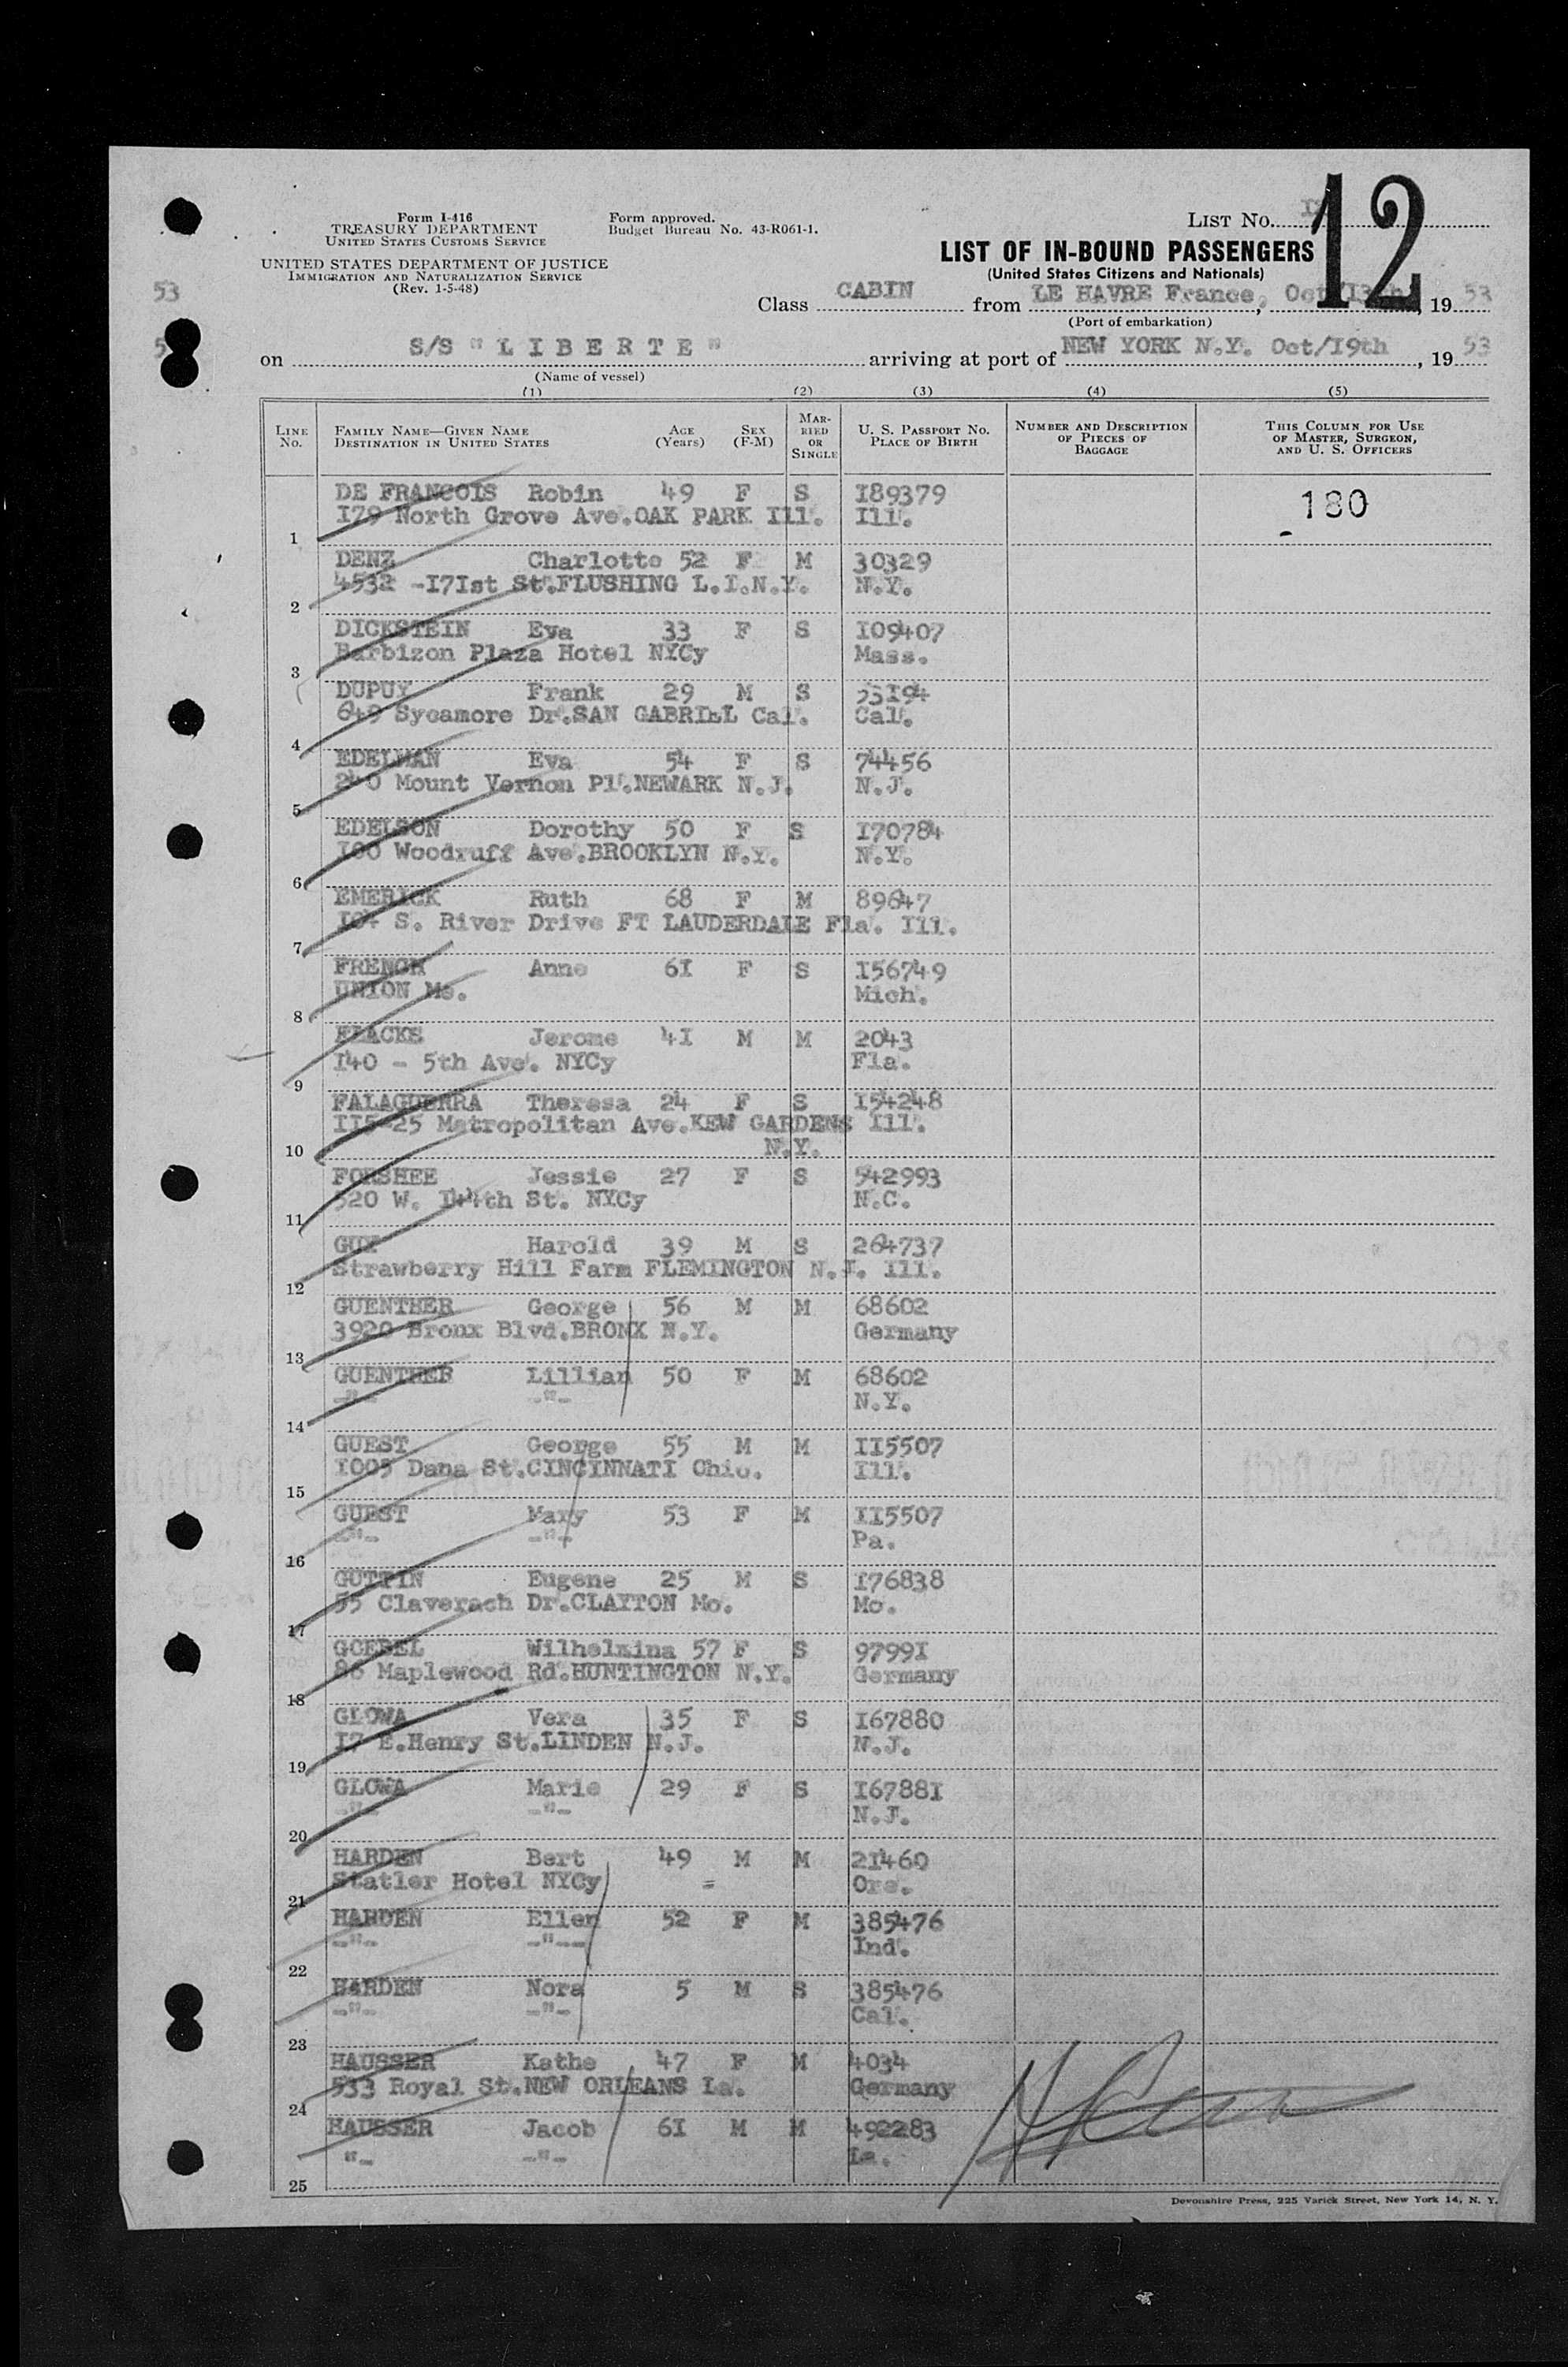 Form I-416
TREASURY DEPARTMENT
UNITED STATES CUSTOMS SERVICE
UNITED STATES DEPARTMENT OF JUSTICE
IMMIGRATION AND NATURALIZATION SERVICE
(Rev. 1-5-48)
Form approved.
Budget Bureau No. 43-R061-1.
LIST No.
12
LIST OF IN-BOUND PASSENGERS
(United States Citizens and Nationals)
53
Class CABIN from LE HAVRE France, Oct/13th, 19 53
(Port of embarkation)
on S/S "LIBERTE" arriving at port of NEW YORK N.Y. Oct/I9th, 19 53
(Name of vessel)
(1) (2) (3) (4) (5)
LINE No. FAMILY NAME—GIVEN NAME DESTINATION IN UNITED STATES AGE (Years) SEX (F-M) MARRIED OR SINGLE U. S. PASSPORT No. PLACE OF BIRTH NUMBER AND DESCRIPTION OF PIECES OF BAGGAGE THIS COLUMN FOR USE OF MASTER, SURGEON, AND U. S. OFFICERS
DE FRANCOIS Robin 49 F S I89379 180
I79 North Grove Ave.OAK PARK Ill. Ill.
1
DENZ Charlotte 52 F M 30329
4532 -I7Ist St.FLUSHING L.I.N.Y. N.Y.
2
DICKSTEIN Eva 33 F S I09407
Barbizon Plaza Hotel NYCy Mass.
3
DUPUY Frank 29 M S 53I94
649 Sycamore Dr.SAN GABRIEL Cal. Cal.
4
EDELMAN Eva 54 F S 74456
240 Mount Vernon Pl.NEWARK N.J. N.J.
5
EDELSON Dorothy 50 F S I70784
I00 Woodruff Ave.BROOKLYN N.Y. N.Y.
6
EMERICK Ruth 68 F M 89647
I04 S. River Drive FT LAUDERDALE Fla. Ill.
7
FRENCH Anne 6I F S I56749
UNION Mo. Mich.
8
FLACKS Jerome 4I M M 2043
I40 - 5th Ave. NYCy Fla.
9
FALAGUERRA Theresa 24 F S I54248
II5-25 Matropolitan Ave.KEW GARDENS Ill.
N.Y.
10
FORSHEE Jessie 27 F S 542993
520 W. I44th St. NYCy N.C.
11
GUY Harold 39 M S 264737
Strawberry Hill Farm FLEMINGTON N.J. Ill.
12
GUENTHER George 56 M M 68602
3920 Bronx Blvd.BRONX N.Y. Germany
13
GUENTHER Lillian 50 F M 68602
-"- -"- N.Y.
14
GUEST George 55 M M II5507
I005 Dana St.CINCINNATI Ohio. Ill.
15
GUEST Mary 53 F M II5507
-"- -"- Pa.
16
GUTTIN Eugene 25 M S I76838
55 Claverach Dr.CLAYTON Mo. Mo.
17
GOEBEL Wilhelmina 57 F S 9799I
86 Maplewood Rd.HUNTINGTON N.Y. Germany
18
GLOWA Vera 35 F S I67880
I7 E.Henry St.LINDEN N.J. N.J.
19
GLOWA Marie 29 F S I6788I
-"- -"- N.J.
20
HARDEN Bert 49 M M 2I460
Statler Hotel NYCy = Ore.
21
HARDEN Ellen 52 F M 385476
-"- -"-- Ind.
22
HARDEN Nora 5 M S 385476
-"- -"- Cal.
23
HAUSSER Kathe 47 F M 4034
533 Royal St.NEW ORLEANS La. Germany
24
HAUSSER Jacob 6I M M 492283
"- -"- La.
25
Devonshire Press, 225 Varick Street, New York 14, N. Y.